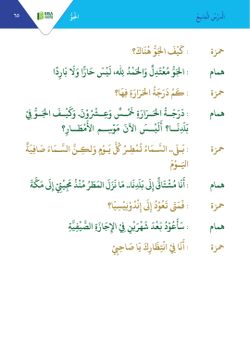 الدَّرْسُ التَّاسِعُ
الجَوُّ
٦٥
حمزة : كَيْفَ الجَوُّ هُنَاكَ؟
همام : الجَوُّ مُعْتَدِلٌ وَالحَمْدُ لِلَّهِ، لَيْسَ حَارًّا وَلَا بَارِدًا
حمزة : كَمْ دَرَجَةُ الحَرَارَةِ فِيهَا؟
همام : دَرَجَةُ الحَرَارَةِ خَمْسٌ وَعِشْرُوْنَ. وَكَيْفَ الجَوُّ فِيْ
بَلَدِنَا؟ أَلَيْسَ الآنَ مَوْسِمَ الأَمْطَارِ؟
حمزة : بَلَى.. السَّمَاءُ تُمْطِرُ كُلَّ يَوْمٍ وَلَكِنَّ السَّمَاءَ صَافِيَةٌ
اليَوْمَ
همام : أَنَا مُشْتَاقٌ إِلَى بَلَدِنَا.. مَا نَزَلَ المَطَرُ مُنْذُ مَجِيْئِيْ إِلَى مَكَّةَ
حمزة : فَمَتَى تَعُوْدُ إِلَى إِنْدُوْنِيْسِيَا؟
همام : سَأَعُوْدُ بَعْدَ شَهْرَيْنِ فِي الإِجَازَةِ الصَّيْفِيَّةِ
حمزة : أَنَا فِيْ انْتِظَارِكَ يَا صَاحِبِيْ